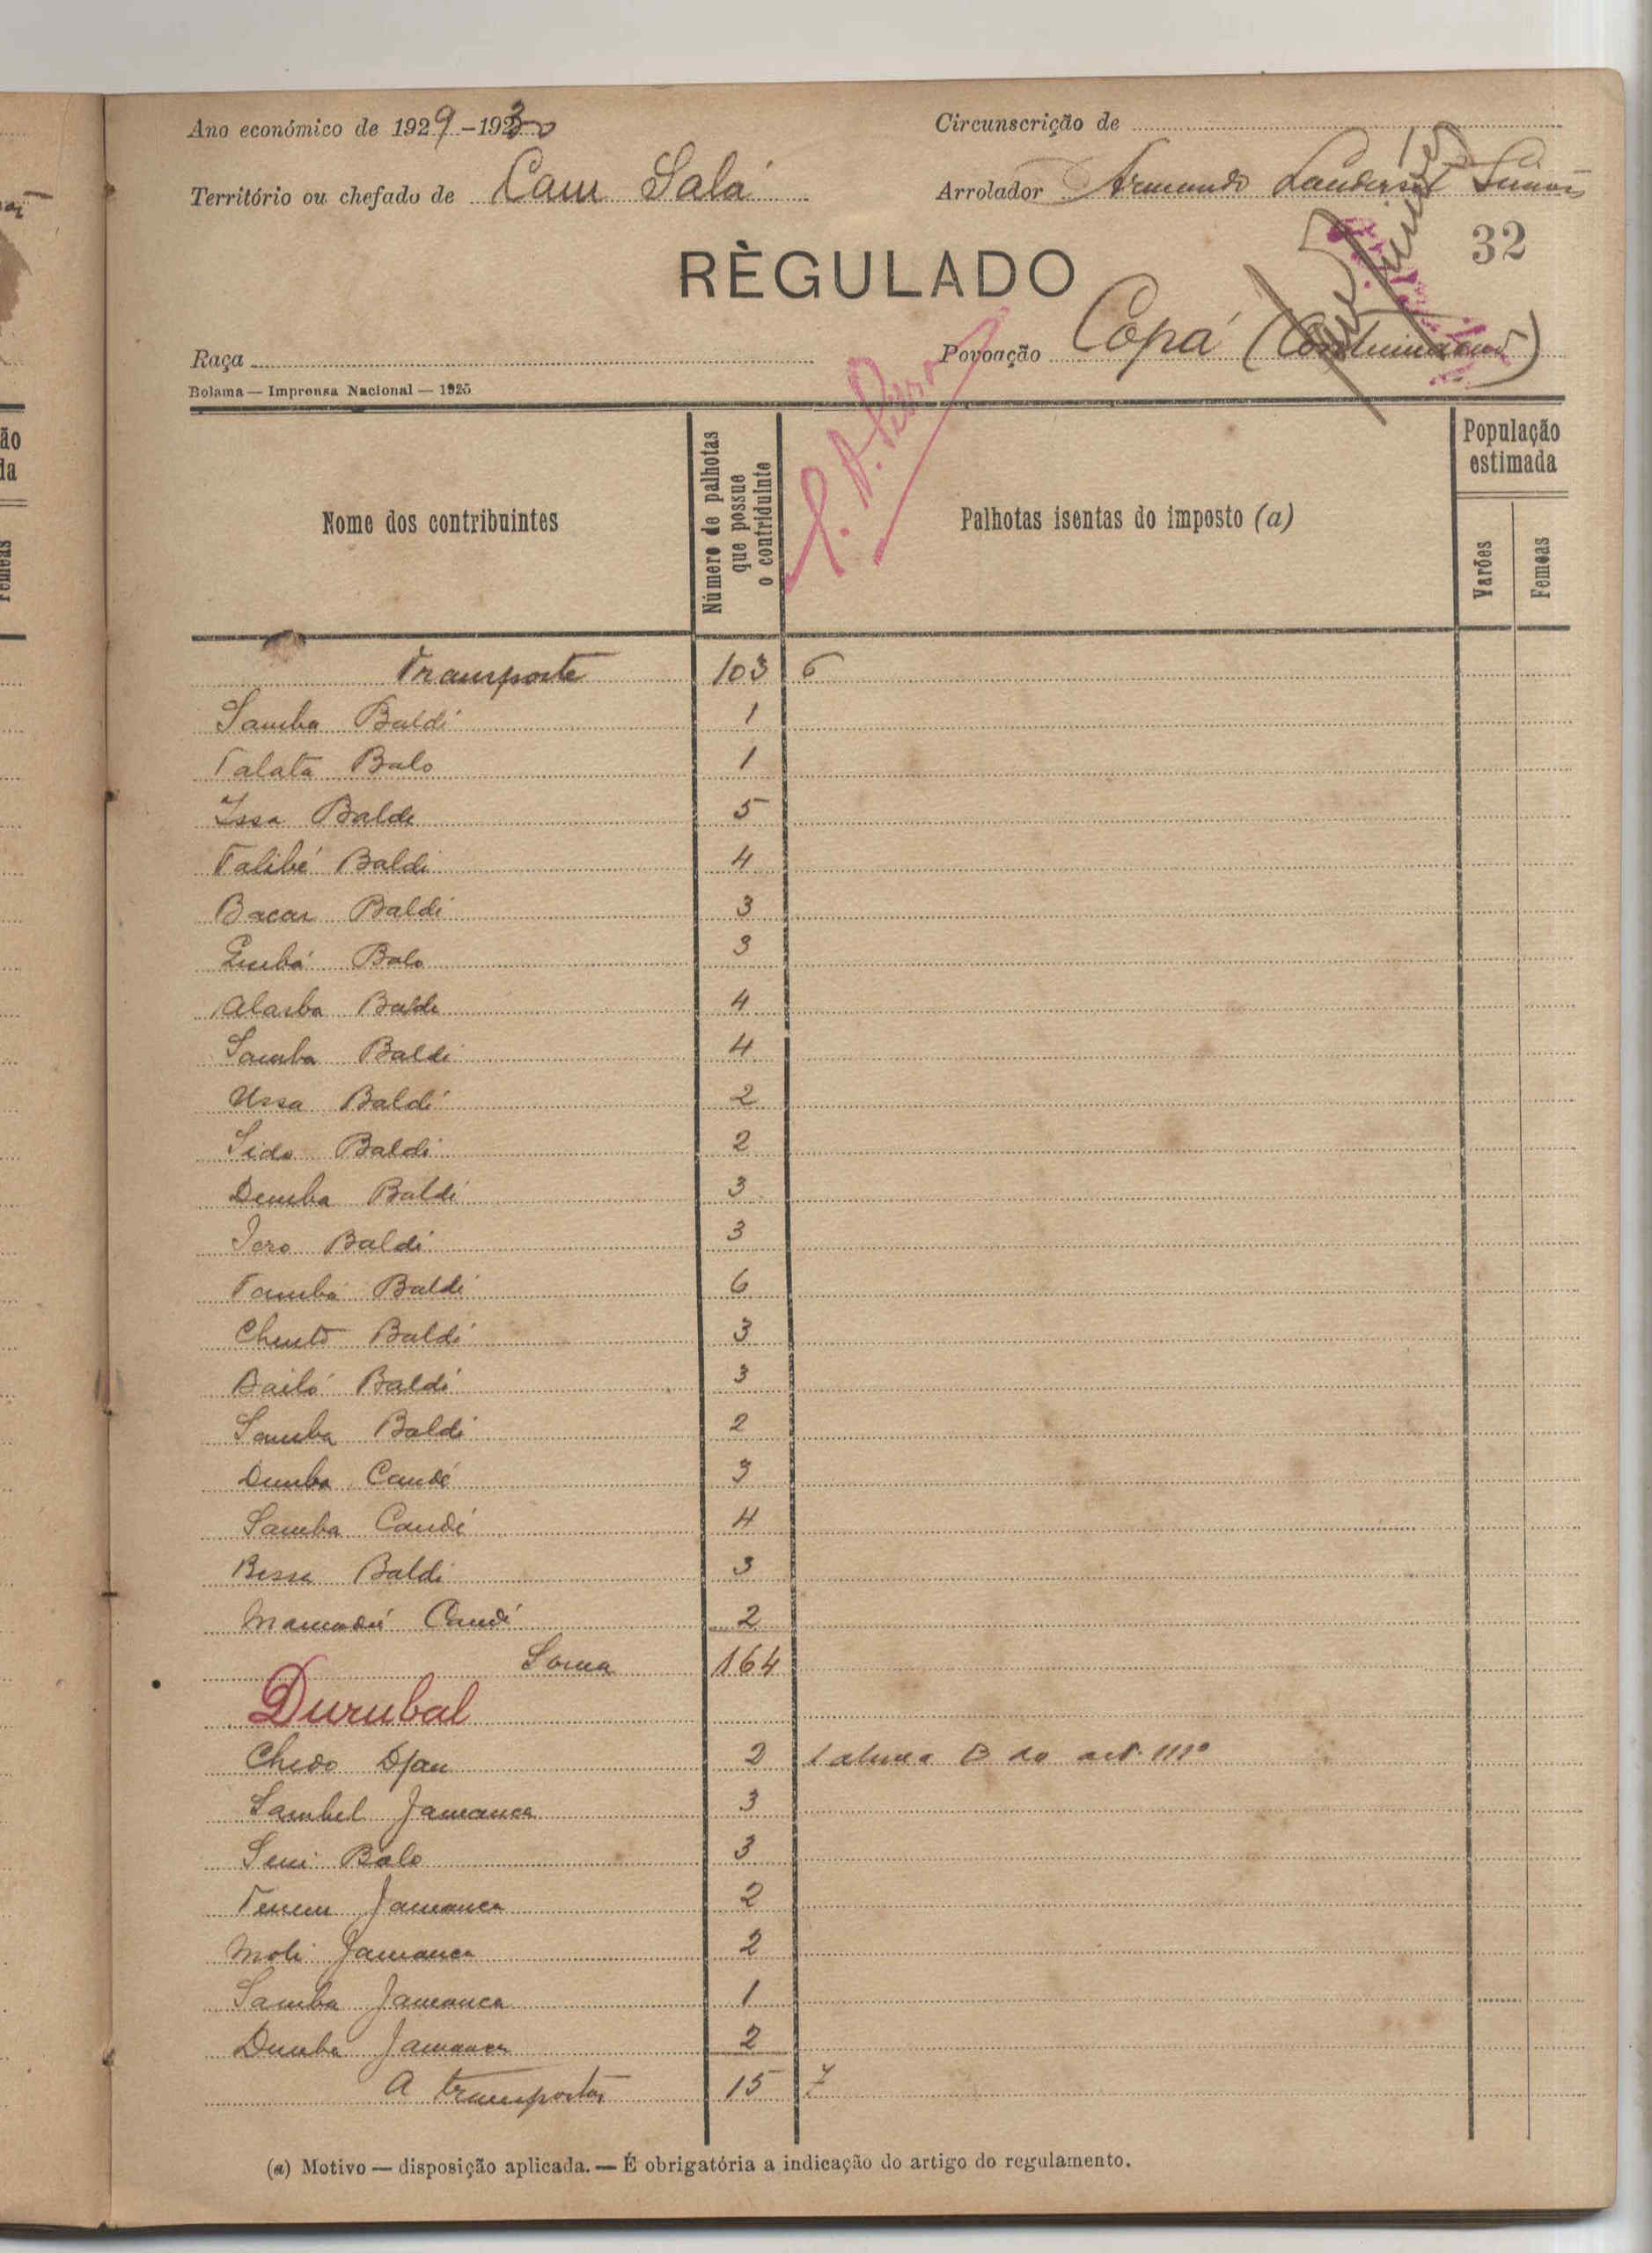 Ano económico de 1929-1930
Circunscrição de
Território ou chefado de Cam Salá
Arrolador Armando
32
RÈGULADO
Raça
Povoação Copá (Continuação)
Bolama — Imprensa Nacional — 1925
Nome dos contribuintes
Número de palhotas que possue o contriduinte
Palhotas isentas do imposto (a)
População estimada
Varões
Femeas
Transporte 103 6
Samba Baldé 1
Talata Balo 1
Issa Balde 5
Talibé Baldi 4
Bacar Baldé 3
Balo 3
Balde 4
Samba Baldé 4
Ussa Baldé 2
Sido Baldé 2
Demba Baldé 3
Joro Baldé 3
Tamba Baldé 6
Baldé 3
Bailó Baldé 3
Samba Baldé 2
Demba Candé 3
Samba Candé 4
Baldé 3
Mamadú Candé 2
Soma 164
Durubal
Chedo Djau 2 1 alinea B do art. 111º
Sambel Jamanca 3
Seni Balo 3
Jamanca 2
Moli Jamanca 2
Samba Jamanca 1
Demba Jamanca 2
A transportar 15 7
(a) Motivo — disposição aplicada. — É obrigatória a indicação do artigo do regulamento.